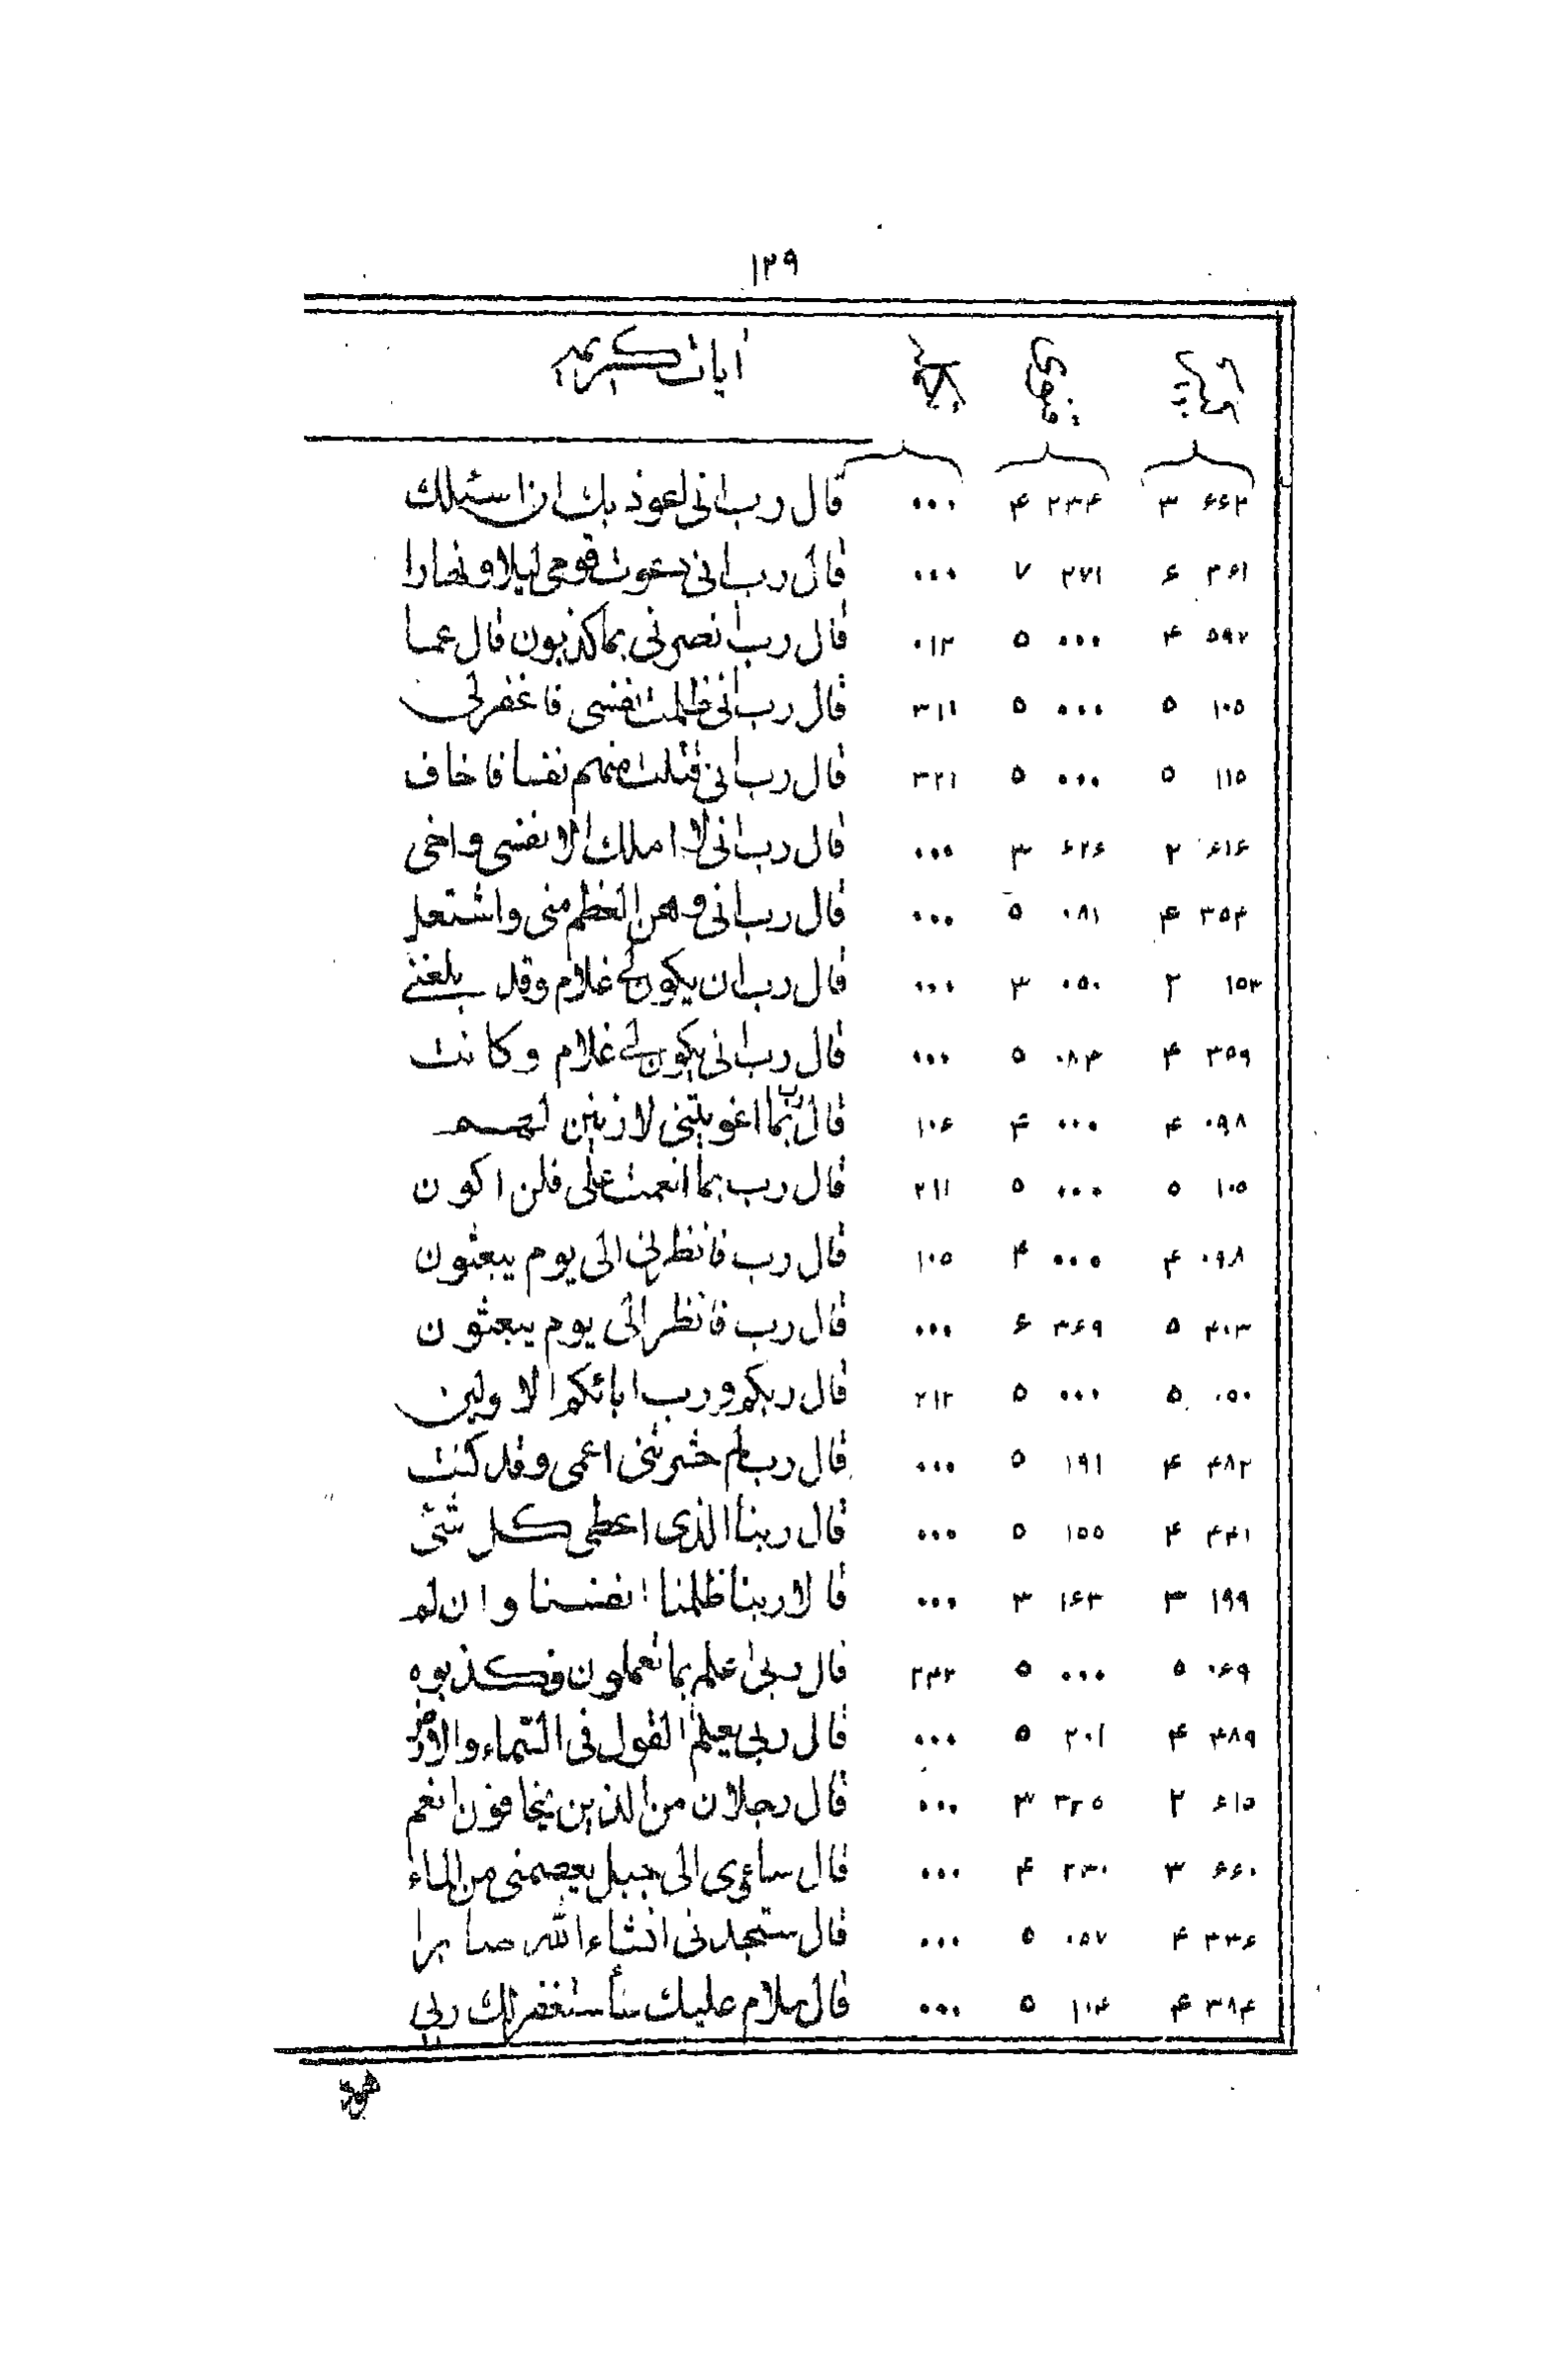 ۱۲۹
آیات کریمه
۶۶۲ ۳ ۲۳۴ ۴ ۰۰۰ قال رب انی اعوذ بك ان اسئلك
۳۶۱ ۶ ۲۷۱ ۷ ۰۰۰ قال رب انی دعوت قومی لیلا و نهارا
۵۹۲ ۴ ۰۰۰ ۵ ۰۱۲ قال رب انصرنی بما کذبون قال عما
۱۰۵ ۵ ۰۰۰ ۵ ۳۱۱ قال رب انی ظلمت نفسی فاغفرلی
۱۱۵ ۵ ۰۰۰ ۵ ۳۲۱ قال رب انی قتلت منهم نفسا فاخاف
۶۱۶ ۲ ۶۲۶ ۳ ۰۰۰ قال رب انی لا املك الا نفسی و اخی
۳۵۴ ۴ ۰۸۱ ۵ ۰۰۰ قال رب انی وهن العظم منی و اشتعل
۱۵۳ ۲ ۰۵۰ ۳ ۰۰۰ قال رب ان یکون لی غلام و قد بلغنی
۳۵۹ ۴ ۰۸۴ ۵ ۰۰۰ قال رب انی یکون لی غلام و کانت
۰۹۸ ۴ ۰۰۰ ۴ ۱۰۶ قال رب بما اغویتنی لازینن لهم
۱۰۵ ۵ ۰۰۰ ۵ ۲۱۱ قال رب بما انعمت علی فلن اکون
۰۹۸ ۴ ۰۰۰ ۴ ۱۰۵ قال رب فانظرنی الی یوم یبعثون
۴۰۳ ۵ ۳۶۹ ۶ ۰۰۰ قال رب فانظر الی یوم یبعثون
۰۵۰ ۵ ۰۰۰ ۵ ۲۱۲ قال ربکم و رب ابائکم الاولین
۴۸۲ ۴ ۱۹۱ ۵ ۰۰۰ قال رب لم حشرتنی اعمی و قد کنت
۴۴۱ ۴ ۱۵۵ ۵ ۰۰۰ قال ربنا الذی اعطی کل شئی
۱۹۹ ۳ ۱۶۳ ۳ ۰۰۰ قالا ربنا ظلمنا انفسنا و ان لم
۰۶۹ ۵ ۰۰۰ ۵ ۲۴۲ قال ربی اعلم بما تعملون فکذبوه
۴۸۹ ۴ ۲۰۱ ۵ ۰۰۰ قال ربی یعلم القول فی السماء والارض
۶۱۵ ۲ ۳۲۵ ۳ ۰۰۰ قال رجلان من الذین یخافون انعم
۶۶۰ ۳ ۲۳۰ ۴ ۰۰۰ قال ساوی الی جبل یعصمنی من الماء
۳۳۶ ۴ ۰۵۷ ۵ ۰۰۰ قال ستجدنی انشاء الله صابرا
۳۸۴ ۴ ۱۰۴ ۵ ۰۰۰ قال سلام علیك سأستغفر لك ربی